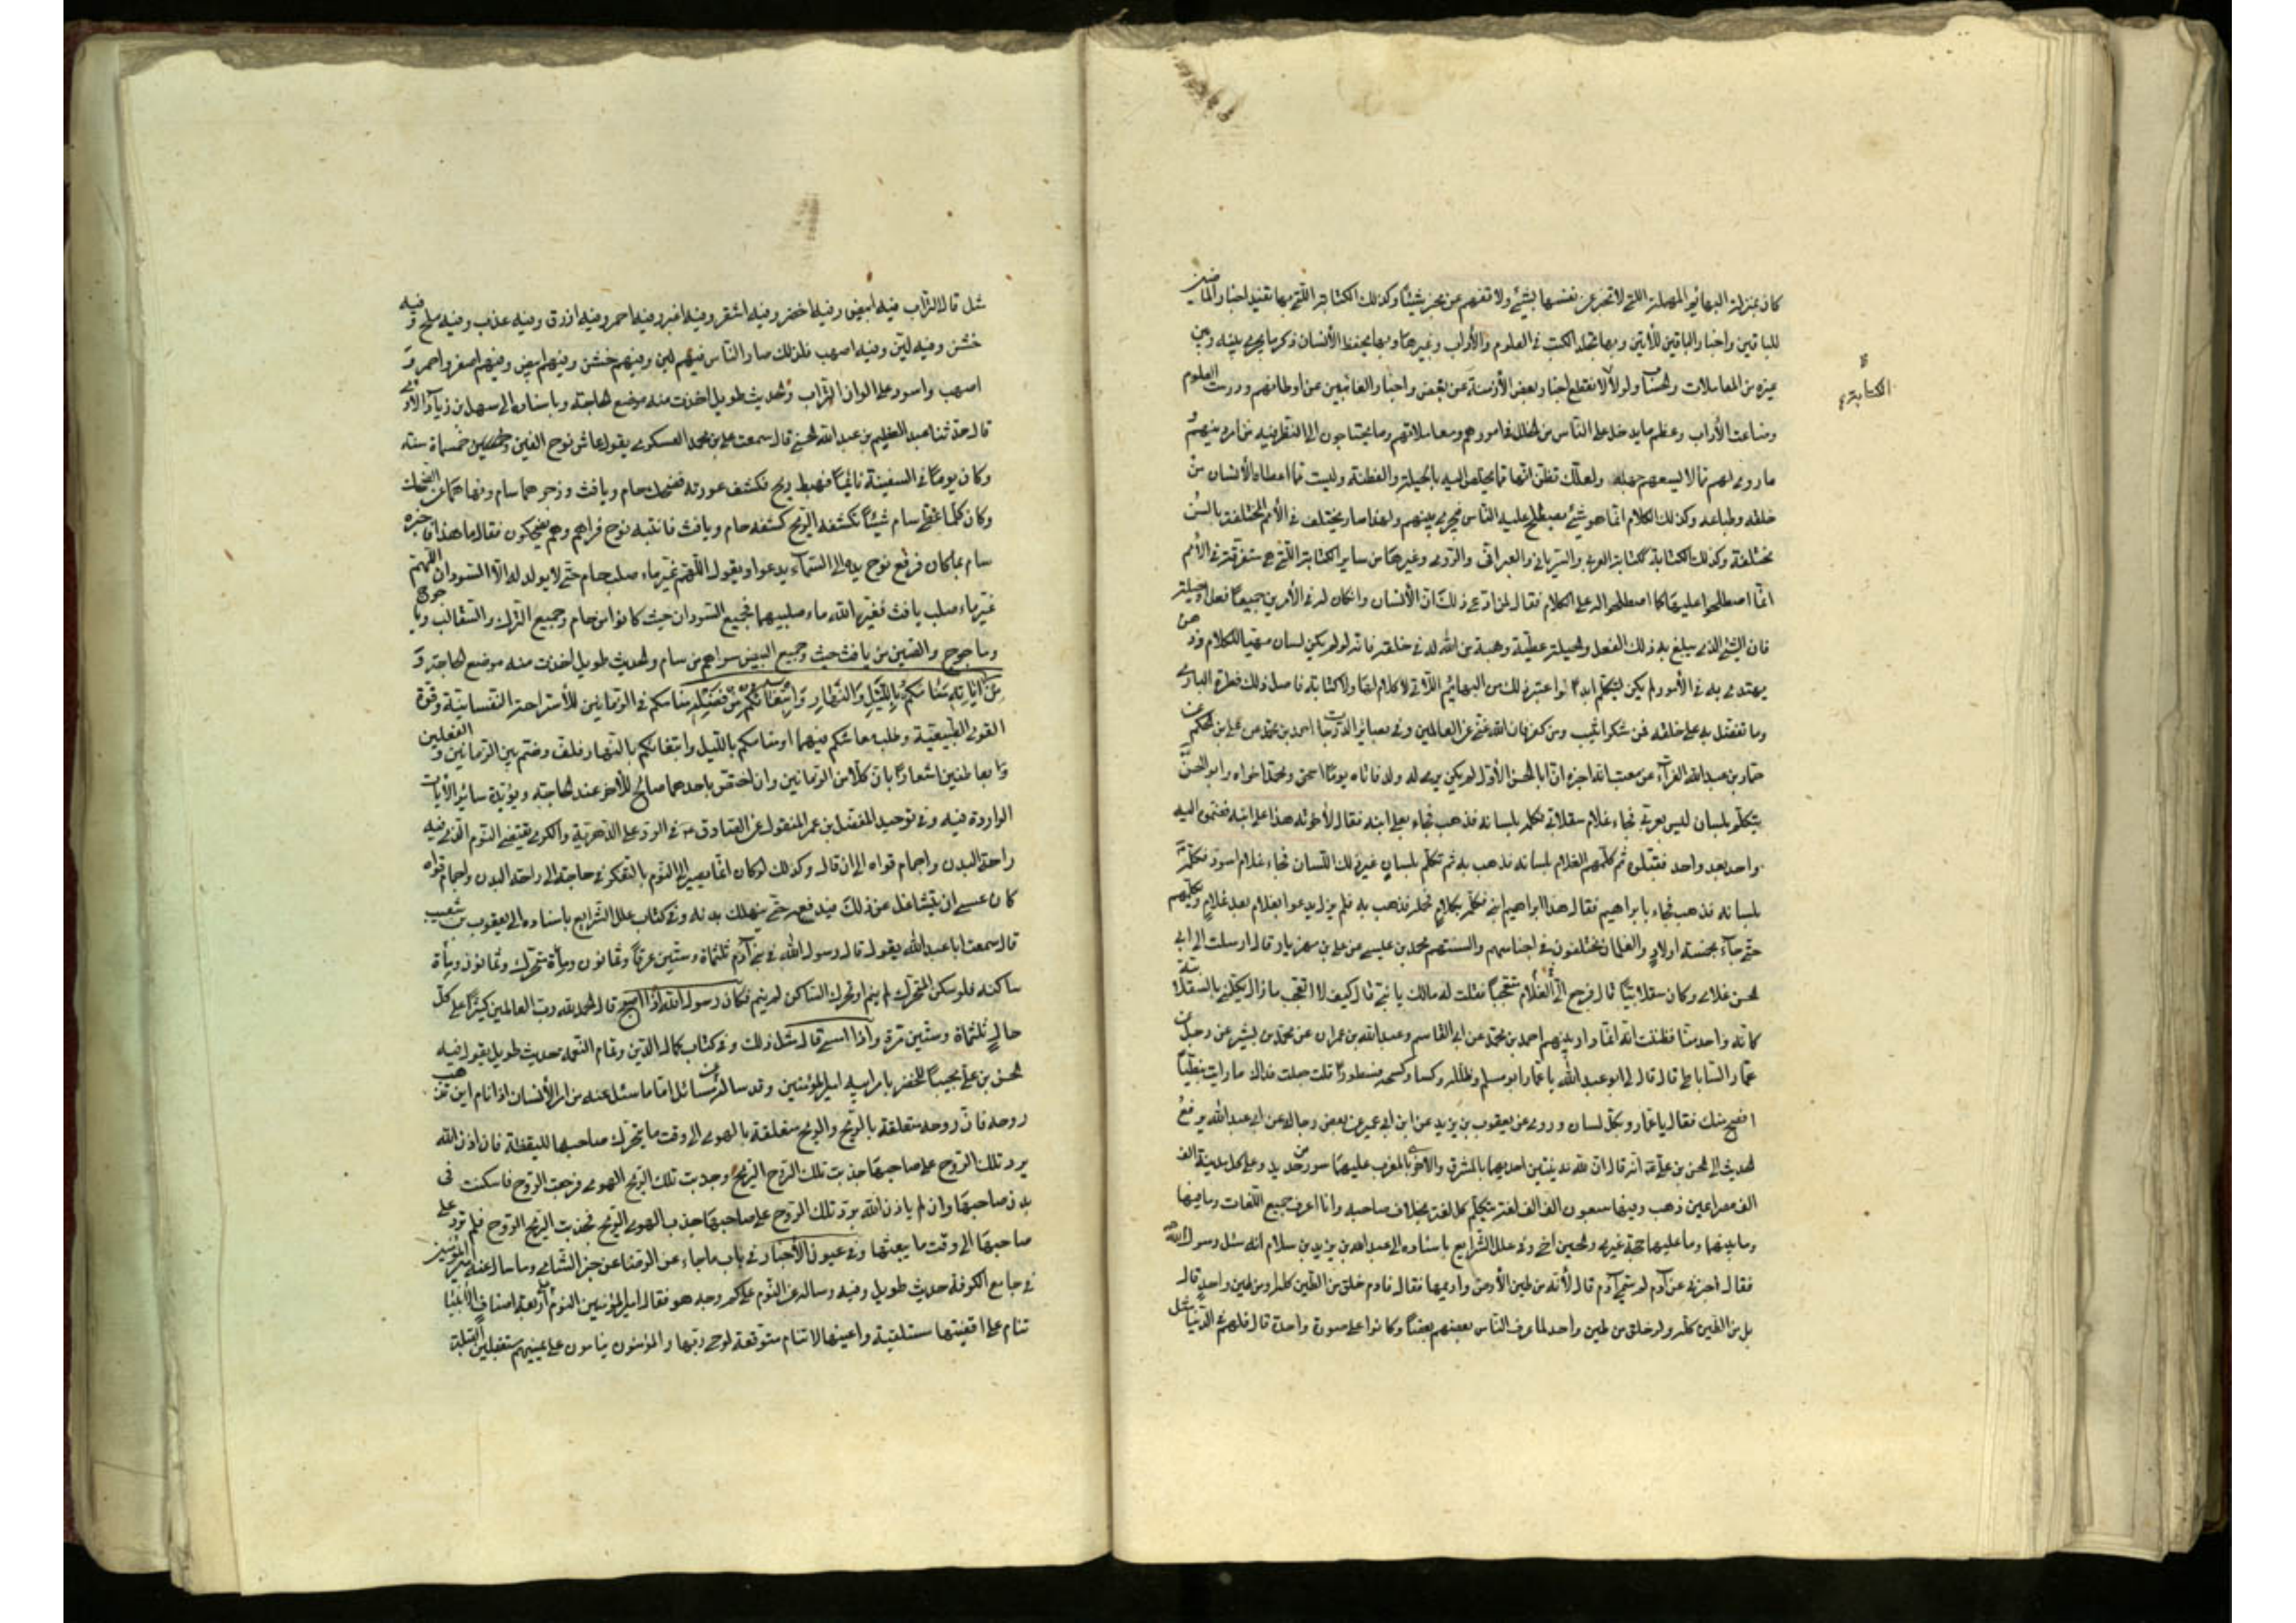 كان بمنزلة البهائم المهملة التي لا تخبر عن نفسها بشيء ولا تفهم عن مخبر شيئا وكذلك الكتابة التي بها تقيد اخبار الماضين
للباقين واخبار الباقين للآتين وبها تخلد الكتب في العلوم والآداب وغيرها وبها يحفظ الانسان ذكر ما يجري بينه وبين
غيره من المعاملات والحساب ولولاه لانقطع اخبار بعض الازمنة عن بعض واخبار الغائبين عن اوطانهم ودرست العلوم
الكتابة
وضاعت الآداب وعظم ما يدخل على الناس من الخلل في امورهم ومعاملاتهم وما يحتاجون الى النظر فيه من امر دينهم و
ما روي لهم مما لا يسعهم جهله ولعلك تظن انها مما يخلص اليه بالحيلة والفطنة وليست مما اعطاه الانسان من
خلقه وطباعه وكذلك الكلام انما هو شيء يصطلح عليه الناس فيجري بينهم ولهذا صار يختلف في الامم المختلفة بالسن
مختلفة وكذلك الكتابة ككتابة العربي والسرياني والعبراني والرومي وغيرها من ساير الكتابة التي هي متفرقة في الامم
انما اصطلحوا عليها كما اصطلحوا له على الكلام فقال لمن ادعى ذلك ان الانسان وان كان له في الامرين جميعا فعل او حيلة
فان الشيء الذي يبلغ به ذلك الفعل والحيلة عطية وهبة من الله له في خلقته فانه لو لم يكن لسان مهيا للكلام وذهن
يهتدي به في الامور لم يكن ليتكلم ابدا واعتبر ذلك من البهائم التي لا كلام لها ولا كتابة فاصل ذلك فطرة الباري
وما تفضل به على خلقه فمن شكر اثيب ومن كفر فان الله غني عن العالمين وفي بصائر الدرجات احمد بن محمد عن علي بن الحكم عن
حماد بن عبد الله الفراء عن معتب انه اخبره ان ابا الحسن الاول لم يكن يرى له ولد فاتاه يوما اسحق ومحمد اخواه وابو الحسن
يتكلم بلسان ليس بعربي فجاء غلام سقلابي فكلمه بلسانه فذهب فجاء بعلي ابنه فقال لاخوته هذا علي ابني فضموه اليه
واحد بعد واحد فقبلوه ثم كلم الغلام بلسانه فذهب به ثم تكلم بلسان غير ذلك اللسان فجاء غلام اسود فكلمه
بلسانه فذهب فجاء بابراهيم فقال هذا ابراهيم ابني فكلمه بكلام فحمله فذهب به فلم يزل يدعو بغلام بعد غلام ويكلمهم
حتى جاء بخمسة اولاد والغلمان مختلفون في اجناسهم والسنتهم محمد بن عيسى عن علي بن مهزيار قال ارسلت الى ابي
الحسن غلامي وكان سقلابيا قال فرجع الي الغلام متعجبا فقلت له مالك يا بني قال كيف لا اتعجب ما زال يكلمني بالسقلابية
كانه واحد منا فظننت انه انما اراد بينهم احمد بن محمد عن ابي القاسم وعبد الله بن عمران عن محمد بن بشير عن رجل عن
عمار الساباطي قال قال لي ابو عبد الله يا عمار ابو مسلم فظلله وكسا وكسحه بسطورا قلت جعلت فداك ما رايت نبطيا
افصح منك فقال يا عمار وبكل لسان وروى عن يعقوب بن يزيد عن ابن ابي عمير عن بعض رجاله عن ابي عبد الله يرفع
الحديث الى الحسن بن علي انه قال ان لله مدينتين احديهما بالمشرق والاخرى بالمغرب عليهما سور من حديد وعلى كل مدينة الف
الف مصراعين ذهب وفيها سبعون الف الف لغة يتكلم كل لغة بخلاف صاحبه وانا اعرف جميع اللغات وما فيها
وما بينهما وما عليها حجة غيري والحسين اخي وفي علل الشرايع باسناده الى عبد الله بن يزيد بن سلام انه سئل رسول الله
فقال اخبرني عن آدم لم سمي آدم قال لانه من طين الارض واديمها فقال فآدم خلق من الطين كله او من طين واحد قال
بل من الطين كله ولو خلق من طين واحد لما عرف الناس بعضهم بعضا وكانوا على صورة واحدة قال فلهم في الدنيا مثل
مثل قال التراب فيه ابيض وفيه اخضر وفيه اشقر وفيه اغبر وفيه احمر وفيه ازرق وفيه عذب وفيه ملح وفيه
خشن وفيه لين وفيه اصهب فلذلك صار الناس فيهم لين وفيهم خشن وفيهم ابيض وفيهم اصفر واحمر و
اصهب واسود على الوان التراب والحديث طويل اخذت منه موضع الحاجة وباسناده الى سهل بن زياد الآدمي
قال حدثنا عبد العظيم بن عبد الله الحسني قال سمعت علي بن محمد العسكري يقول عاش نوح الفين وخمسمائة سنة
وكان يوما في السفينة نائما فهبط ريح فكشف عورته فضحك حام ويافث وزجرهما سام ونهاهما عن الضحك
وكان كلما غطى سام شيئا تكشفه الريح كشفه حام ويافث فانتبه نوح فراهم وهم يضحكون فقال ما هذا فاخبره
سام بما كان فرفع نوح يده الى السماء يدعو ويقول اللهم غير ماء صلب حام حتى لا يولد له الا السودان اللهم
غير ماء صلب يافث فغير الله ماء صلبيهما فجميع السودان حيث كانوا من حام وجميع الترك والسقالب وياجوج
وماجوج والصين من يافث حيث وجميع البيض سواهم من سام والحديث طويل اخذت منه موضع الحاجة و
من آياته منامكم بالليل والنهار وابتغاؤكم من فضله منامكم في الزمانين للاستراحة النفسانية وقوة
القوى الطبيعية وطلب معاشكم فيهما او منامكم بالليل وابتغاؤكم بالنهار فلف وضم بين الزمانين والفعلين
بعاطفين اشعارا بان كلا من الزمانين وان اختص باحدهما صالح للآخر عند الحاجة ويؤيده سائر الآيات
الواردة فيه وفي توحيد المفضل بن عمر المنقول عن الصادق في الرد على الدهرية والكرى يقتضي النوم الذي فيه
راحة البدن واجمام قواه الى ان قال وكذلك لو كان انما يصير الى النوم بالتفكر في حاجته الى راحة البدن واجمام قواه
كان عسى ان يتثاقل عن ذلك فيدفعه حتى ينهك بدنه وفي كتاب علل الشرايع باسناده الى يعقوب بن شعيب
قال سمعت ابا عبد الله يقول قال رسول الله في بني آدم ثلثمائة وستين عرقا وثمانون ومأة متحركة وثمانون ومأة
ساكنه فلو سكن المتحرك لم ينم او تحرك الساكن لم ينم فكان رسول الله اذا اصبح قال الحمد لله رب العالمين كثيرا على كل
حال ثلثمائة وستين مرة واذا امسى قال مثل ذلك وفي كتاب كمال الدين وتمام النعمة حديث طويل يقول فيه
الحسن بن علي مجيبا للخضر بامر ابيه امير المؤمنين وقد ساله عن مسائل اما ما سئل عنه من امر الانسان اذا نام اين تذهب
روحه فان روحه متعلقة بالريح والريح متعلقة بالهوى الى وقت ما يتحرك صاحبها لليقظة فان اذن الله
برد تلك الروح على صاحبها جذبت تلك الروح الريح وجذبت تلك الريح الهوى فرجعت الروح فاسكنت في
بدن صاحبها وان لم ياذن الله برد تلك الروح على صاحبها جذب الهوى الريح فجذبت الريح الروح فلم ترد على
صاحبها الى وقت ما يبعثها وفي عيون الاخبار في باب ما جاء عن الرضا من خبر الشامي وما سال عنه امير المؤمنين
في جامع الكوفة حديث طويل وفيه وساله عن النوم على كم وجه هو فقال امير المؤمنين النوم اربعة اصناف الانبيا
تنام على اقفيتها مستلقية واعينها لا تنام متوقعة لوحي ربها والمؤمنون ينامون على يمينهم مستقبلين القبلة